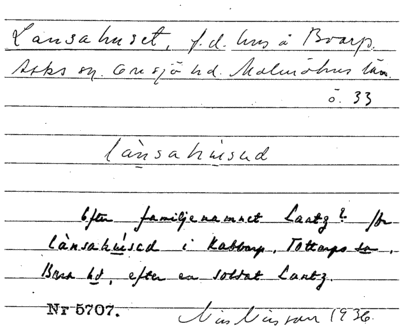 Lansahuset, f.d. hus å Boarp.
Asks sn. Onsjö hd. Malmöhus län.
ö. 33
lànsahuised
Efter familjenamnet Lantz? Jfr
lànsahuised i Kabbarp, Tottarps sn,
Bara hd, efter en soldat Lantz.
Nr 5707. Nils Nilsson 1936.